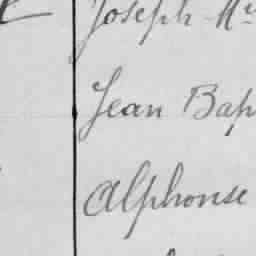 Joseph
Jean Bap
Alphonse